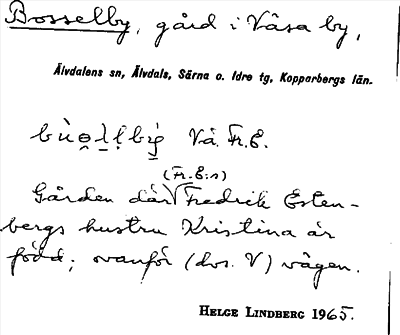 Bosselby, gård i Våsa by,
Älvdalens sn, Älvdals, Särna o. Idre tg, Kopparbergs län.
Vå. Fr.E.
(Fr. E:s)
Gården där Fredrick Esten-
bergs hustru Kristina är
född; ovanför (dvs. V) vägen.
HELGE LINDBERG 1965.